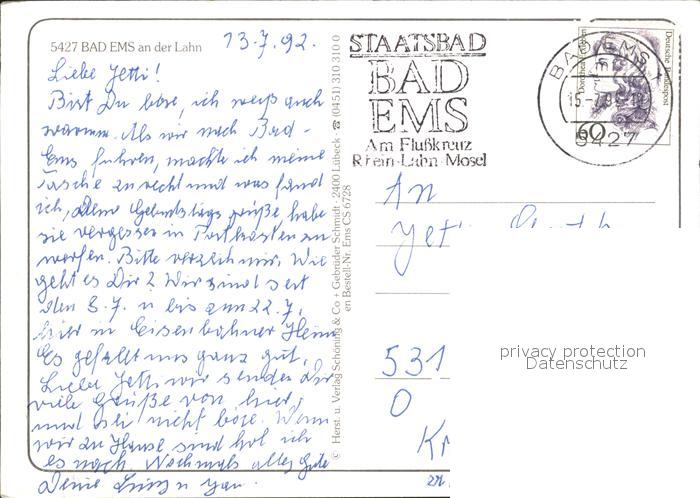 5427 BAD EMS an der Lahn
13.7.92.
Liebe Jetti!
Bist Du böse, ich weiß auch
warum. Als wir nach Bad-
Ems fuhren, machte ich meine
Tasche zurecht und was fand
ich, Deine Geburtstagsgrüße habe
sie vergessen in Postkasten zu
werfen. Bitte verzeih mir. Wie
geht es Dir? Wir sind seit
den 8.7. u bis zum 22.7.
hier in Eisenbahner Heim
Es gefällt uns ganz gut.
Liebe Jetti wir senden Dir
viele Grüße von hier,
und sei nicht böse. Wenn
wir zu Hause sind hol ich
es nach. Nochmals alles gute
Deine
© Herst. u. Verlag Schöning & Co + Gebrüder Schmidt · 2400 Lübeck · ☎ (0451) 310 310 0
en Bestell-Nr. Ems CS 6728
STAATSBAD
BAD
EMS
Am Flußkreuz
Rhein-Lahn-Mosel
BAD EMS
5427
Deutsche Bundespost
60
An
531
O
privacy protection
Datenschutz